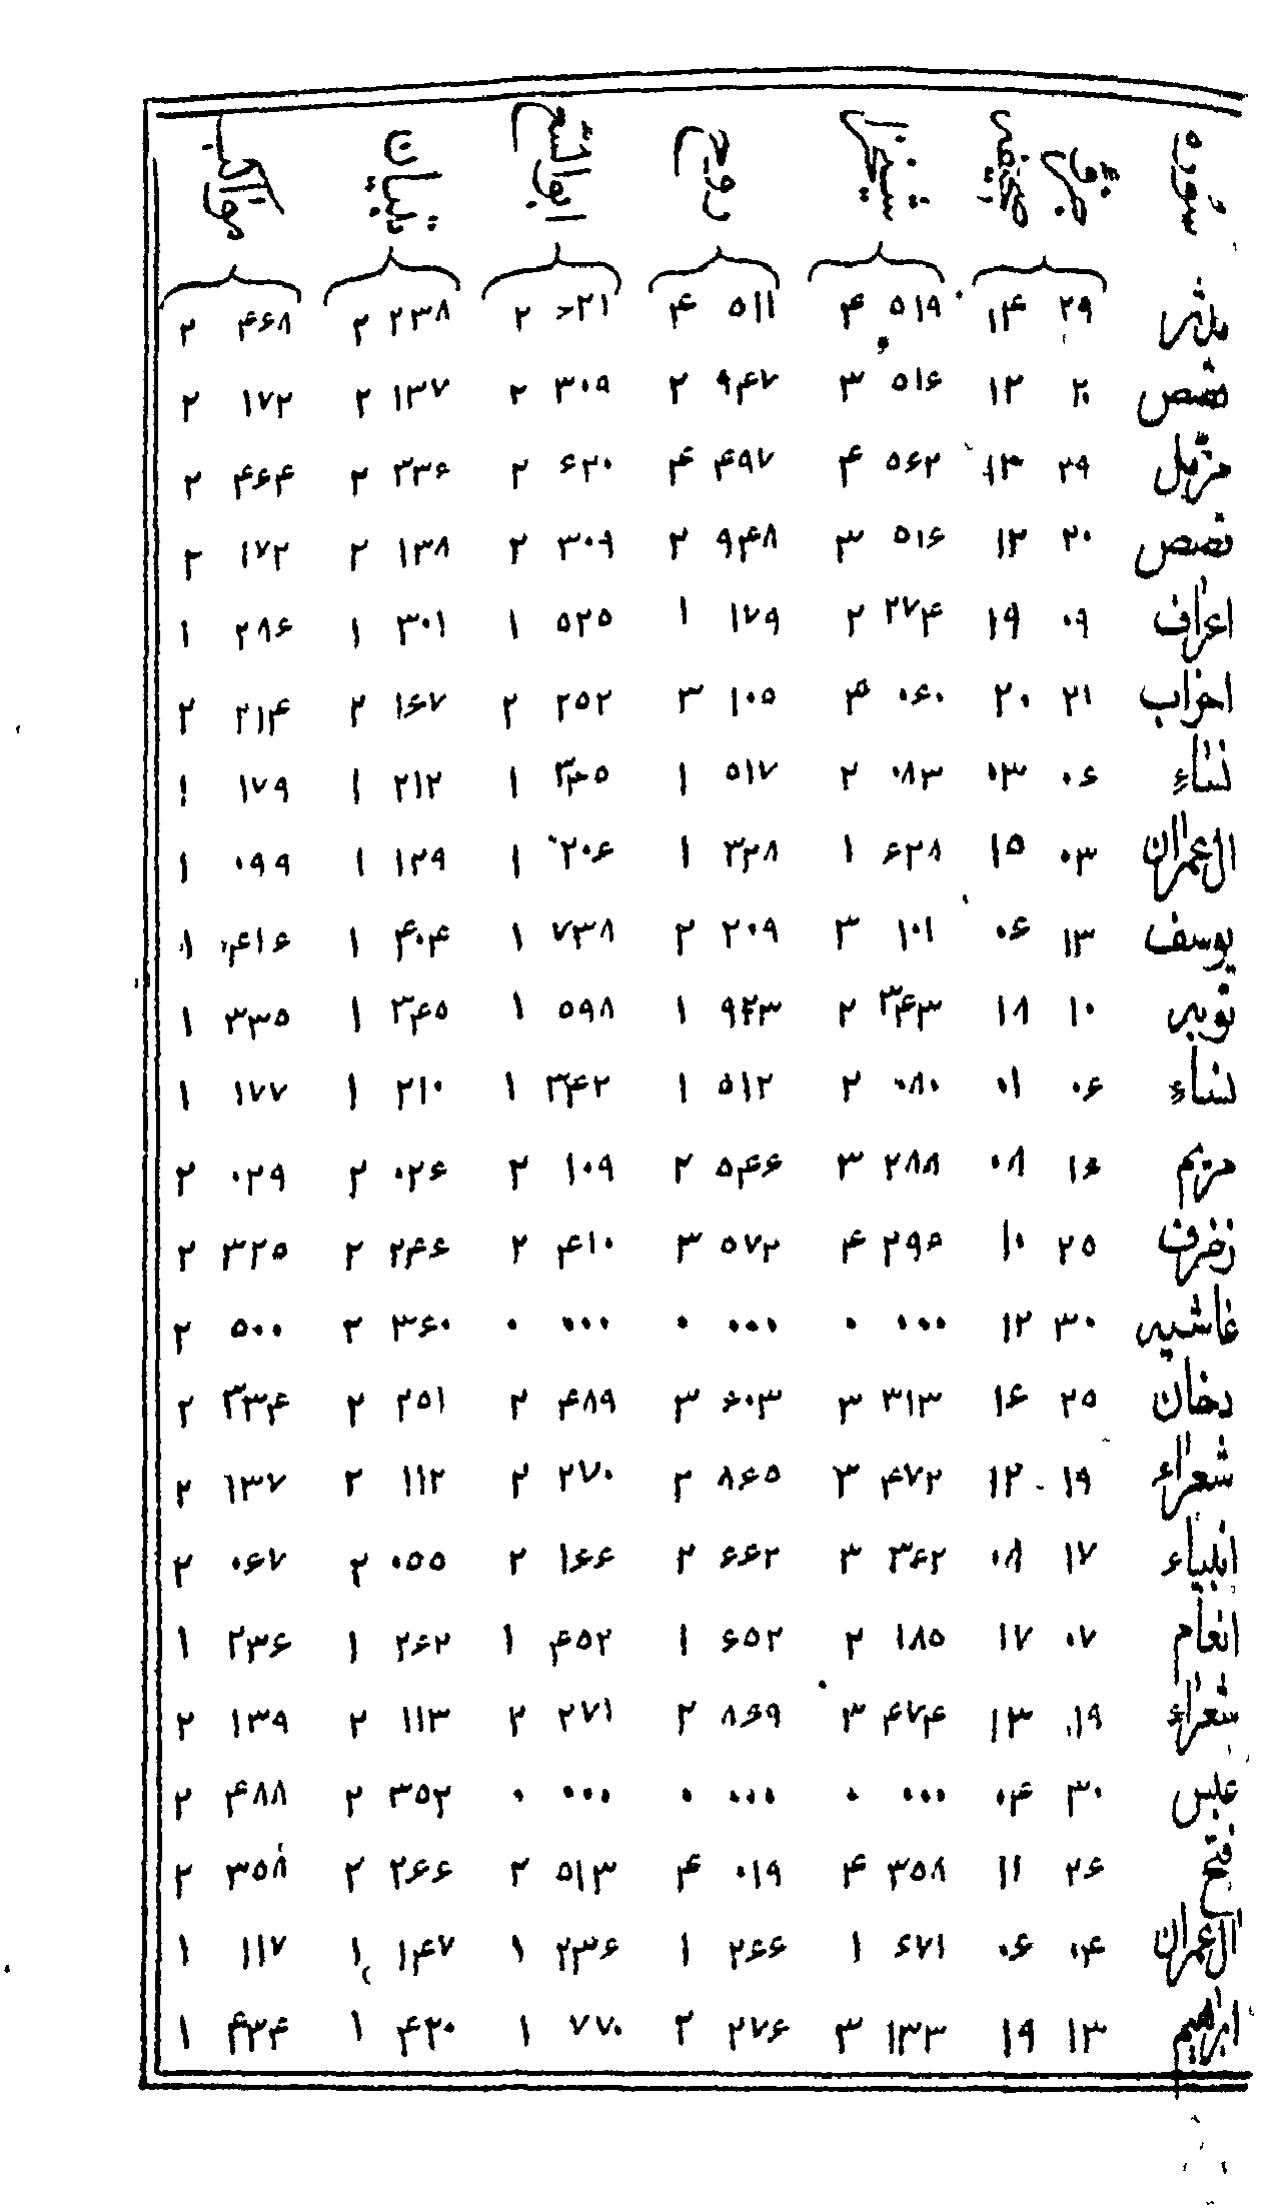 سوره جزء صحیفه شیخ روح ابوالفتوح تبیان مواکب
مدثر ۲۹ ۱۴ ۵۱۹ ۴ ۵۱۱ ۴ ۲ ۲۳۸ ۲ ۴۶۸ ۲
قصص ۲۰ ۱۲ ۵۱۶ ۳ ۹۴۷ ۲ ۳۰۹ ۲ ۱۳۷ ۲ ۱۷۲ ۲
مزمل ۲۹ ۱۳ ۵۶۲ ۴ ۴۹۷ ۴ ۶۲۰ ۲ ۲۳۶ ۲ ۴۶۴ ۲
قصص ۲۰ ۱۲ ۵۱۶ ۳ ۹۴۸ ۲ ۳۰۹ ۲ ۱۳۸ ۲ ۱۷۲ ۲
اعراف ۰۹ ۱۹ ۲۷۴ ۲ ۱۷۹ ۱ ۵۲۵ ۱ ۳۰۱ ۱ ۲۸۶ ۱
احزاب ۲۱ ۲۰ ۰۶۰ ۴ ۱۰۵ ۳ ۲۵۲ ۲ ۱۶۷ ۲ ۲۱۴ ۲
نساء ۰۶ ۰۳ ۰۸۳ ۲ ۵۱۷ ۱ ۳۴۵ ۱ ۲۱۲ ۱ ۱۷۹ ۱
ال عمران ۰۳ ۱۵ ۶۲۸ ۱ ۳۲۸ ۱ ۲۰۶ ۱ ۱۲۹ ۱ ۰۹۹ ۱
یوسف ۱۳ ۰۶ ۱۰۱ ۳ ۲۰۹ ۲ ۷۳۸ ۱ ۴۰۴ ۱ ۴۱۶ ۱
توبه ۱۰ ۱۸ ۳۴۳ ۲ ۹۲۳ ۱ ۵۹۸ ۱ ۳۴۵ ۱ ۳۳۵ ۱
نساء ۰۶ ۰۱ ۰۸۰ ۲ ۵۱۲ ۱ ۳۴۲ ۱ ۲۱۰ ۱ ۱۷۷ ۱
مریم ۱۶ ۰۸ ۲۸۸ ۳ ۵۴۶ ۲ ۱۰۹ ۲ ۰۲۶ ۲ ۰۲۹ ۲
زخرف ۲۵ ۱۰ ۲۹۶ ۴ ۵۷۲ ۳ ۴۱۰ ۲ ۲۴۶ ۲ ۳۲۵ ۲
غاشیه ۳۰ ۱۲ ۰۰۰ ۰ ۰۰۰ ۰ ۰۰۰ ۰ ۳۶۰ ۲ ۵۰۰ ۲
دخان ۲۵ ۱۶ ۳۱۳ ۳ ۶۰۳ ۳ ۴۸۹ ۲ ۲۵۱ ۲ ۳۳۴ ۲
شعراء ۱۹ ۱۲ ۴۷۲ ۳ ۸۶۵ ۲ ۲۷۰ ۲ ۱۱۲ ۲ ۱۳۷ ۲
انبیاء ۱۷ ۰۸ ۳۶۲ ۳ ۶۶۲ ۲ ۱۶۶ ۲ ۰۵۵ ۲ ۰۶۷ ۲
انعام ۰۷ ۱۷ ۱۸۵ ۲ ۶۵۲ ۱ ۴۵۲ ۱ ۲۶۲ ۱ ۲۳۶ ۱
شعراء ۱۹ ۱۳ ۴۷۴ ۳ ۸۶۹ ۲ ۲۷۱ ۲ ۱۱۳ ۲ ۱۳۹ ۲
عبس ۳۰ ۰۴ ۰۰۰ ۰ ۰۰۰ ۰ ۰۰۰ ۰ ۳۵۲ ۲ ۴۸۸ ۲
فتح ۲۶ ۱۱ ۳۵۸ ۴ ۰۱۹ ۴ ۵۱۳ ۲ ۲۶۶ ۲ ۳۵۸ ۲
ال عمران ۰۴ ۰۶ ۶۷۱ ۱ ۲۶۶ ۱ ۲۳۶ ۱ ۱۴۷ ۱ ۱۱۷ ۱
ابراهیم ۱۳ ۱۹ ۱۳۳ ۳ ۲۷۶ ۲ ۷۷۰ ۱ ۴۲۰ ۱ ۴۳۴ ۱